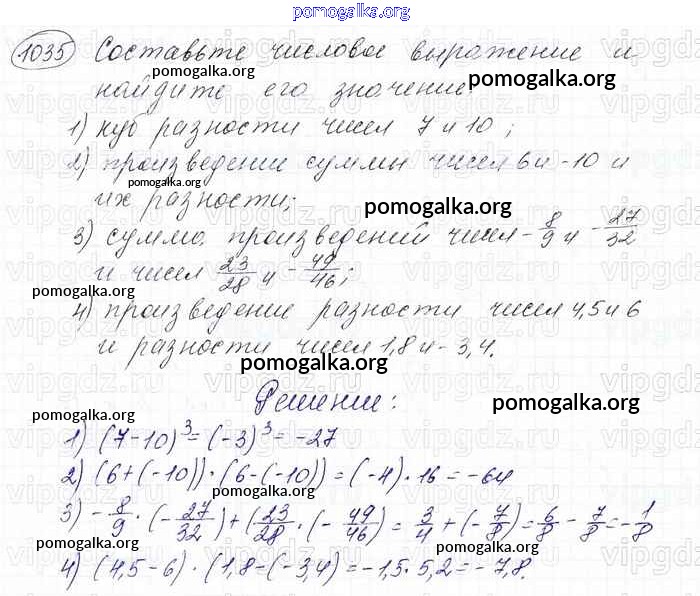 pomogalka.org
1035 Составьте числовое выражение и
pomogalka.org pomogalka.org
найдите его значение:
1) куб разности чисел 7 и 10;
2) произведение суммы чисел 6 и -10 и
pomogalka.org
их разности;
pomogalka.org
3) сумма произведений чисел -8/9 и -27/32
и чисел 23/28 и -49/46;
pomogalka.org
4) произведение разности чисел 4,5 и 6
и разности чисел 1,8 и -3,4.
pomogalka.org
Решение:
pomogalka.org pomogalka.org
1) (7-10)³=(-3)³=-27
2) (6+(-10))·(6-(-10))=(-4)·16=-64
pomogalka.org
3) -8/9·(-27/32)+(23/28·(-49/46)=3/4+(-7/8)=6/8-7/8=-1/8
pomogalka.org pomogalka.org
4) (4,5-6)·(1,8-(-3,4)=-1,5·5,2=-7,8.